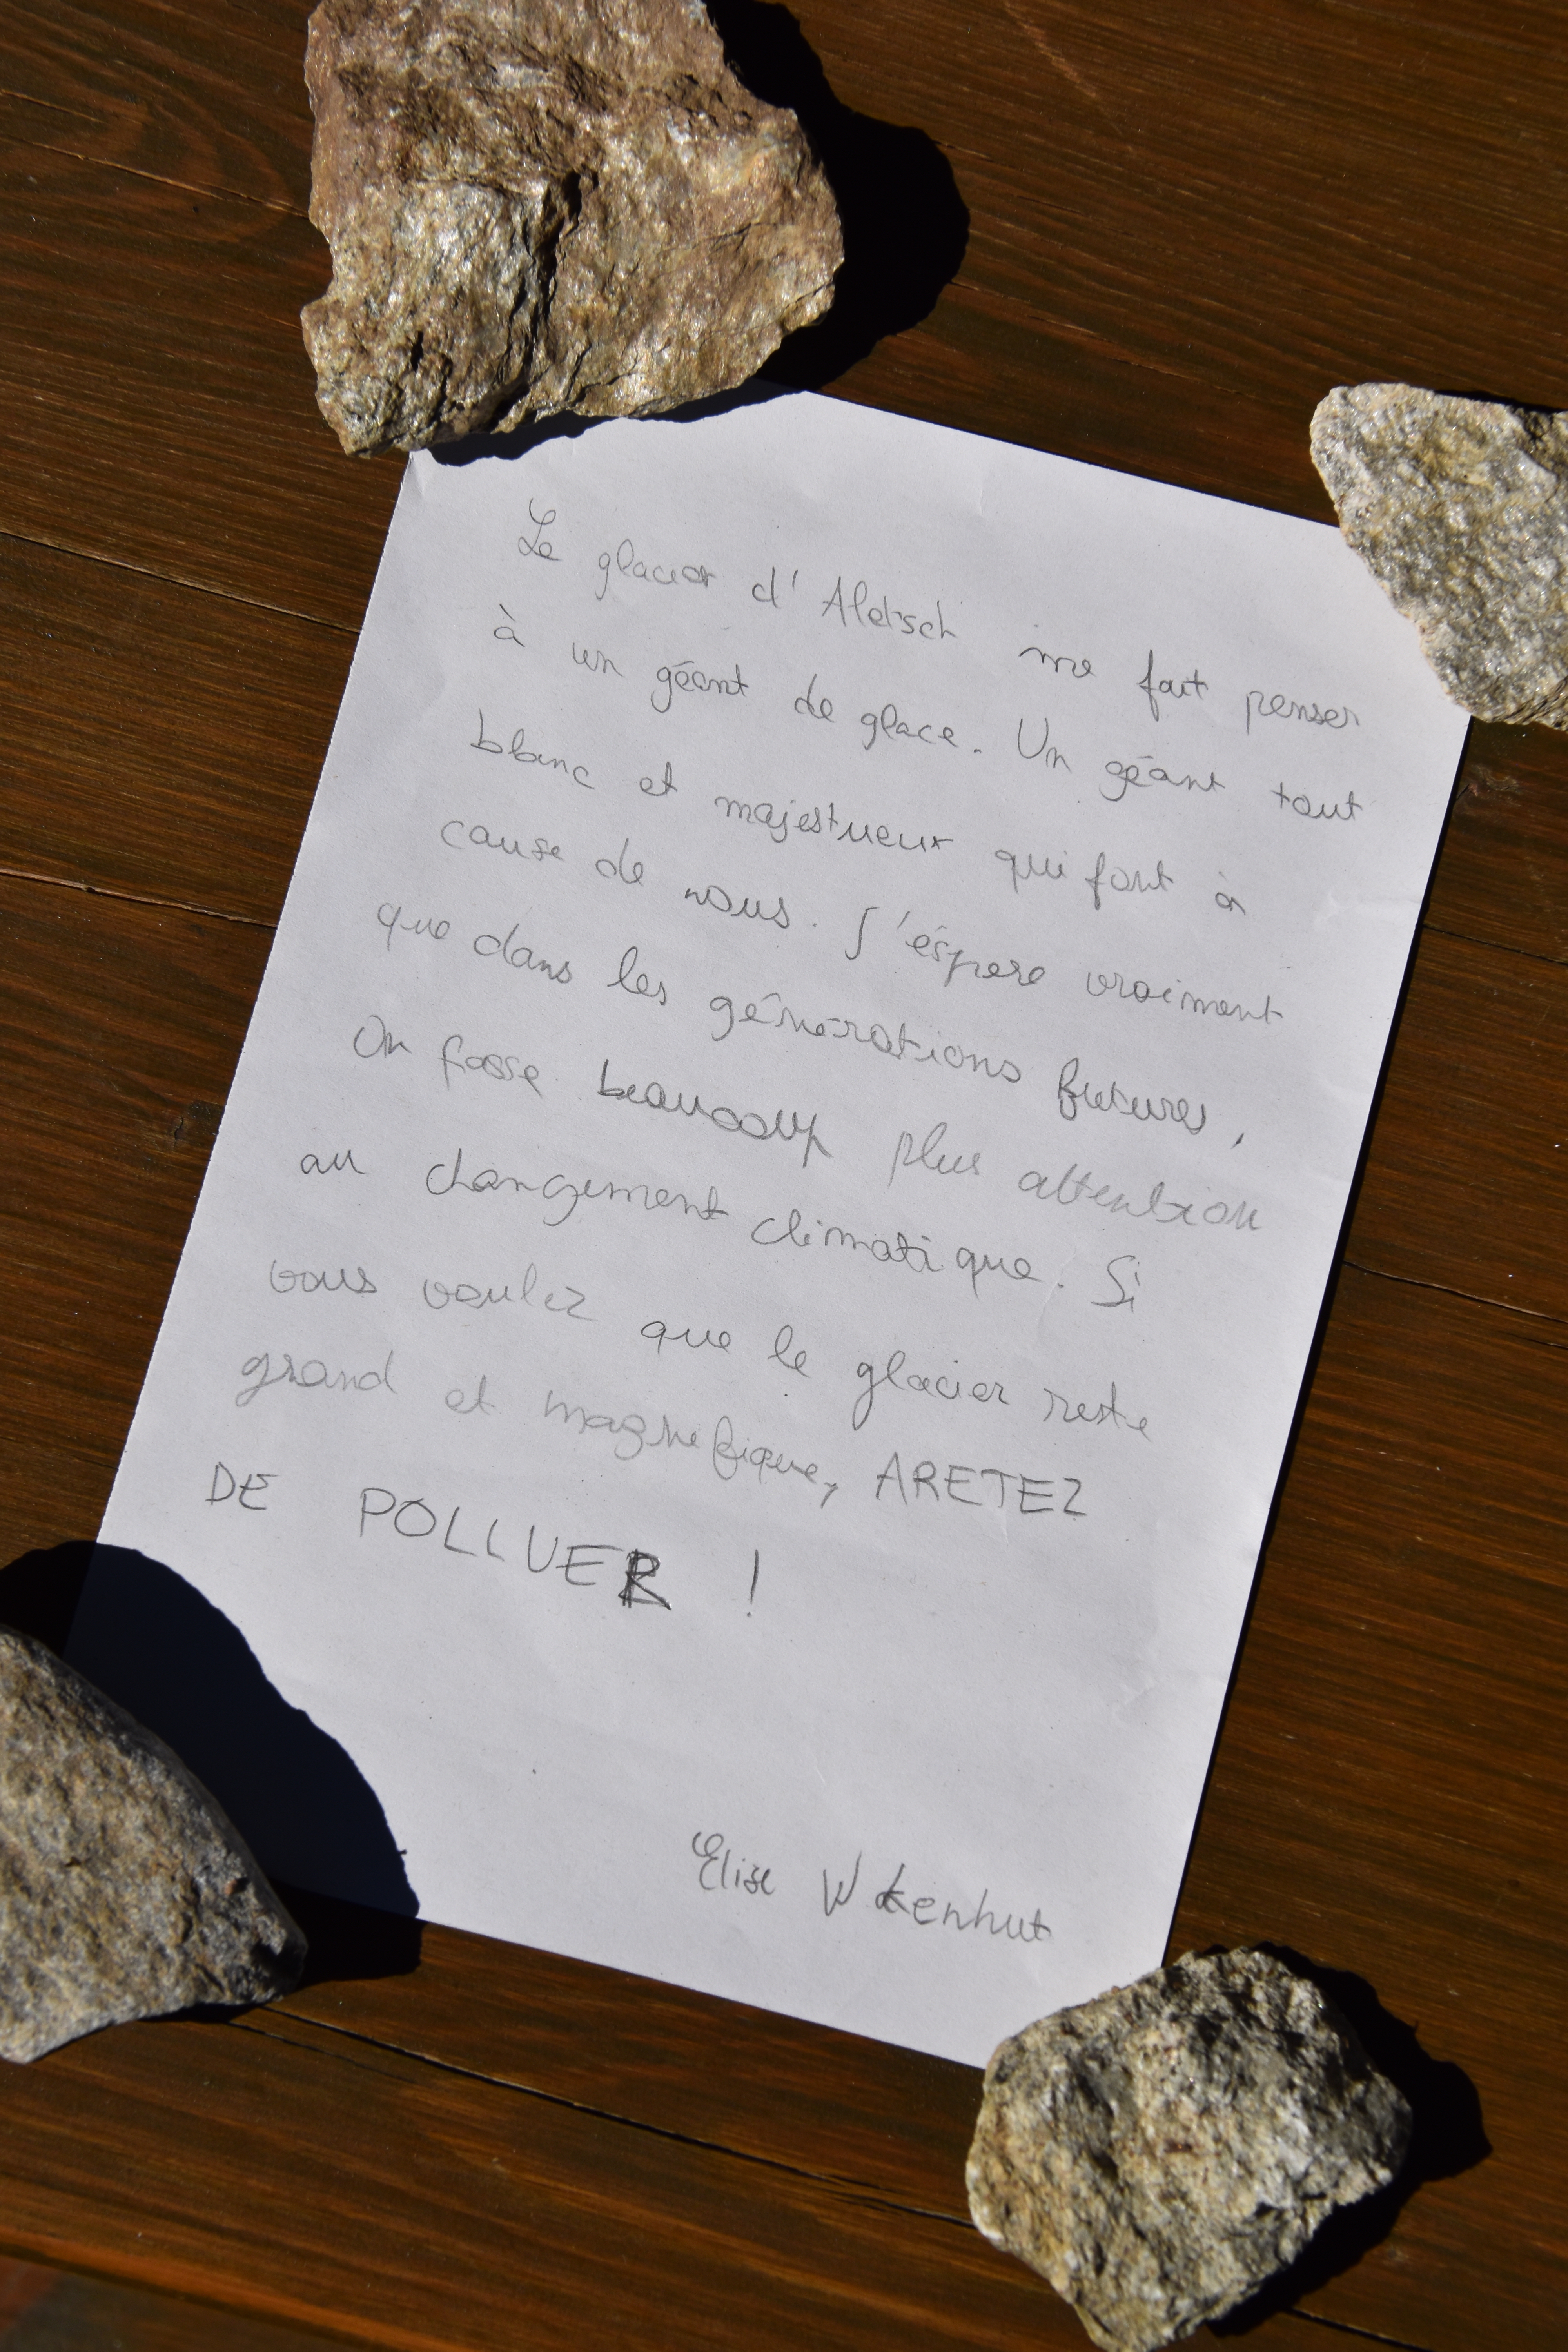 Le glacier d'Aletsch me fait penser
à un géant de glace. Un géant tout
blanc et majestueux qui font à
cause de nous. J'éspere vraiment
que dans les générations futures,
On fasse beaucoup plus attention
au changement climatique. Si
vous voulez que le glacier reste
grand et magnifique, ARETEZ
DE POLLUER !
Elise